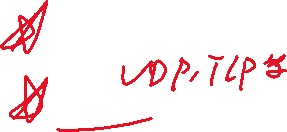 UDP, TCP 등